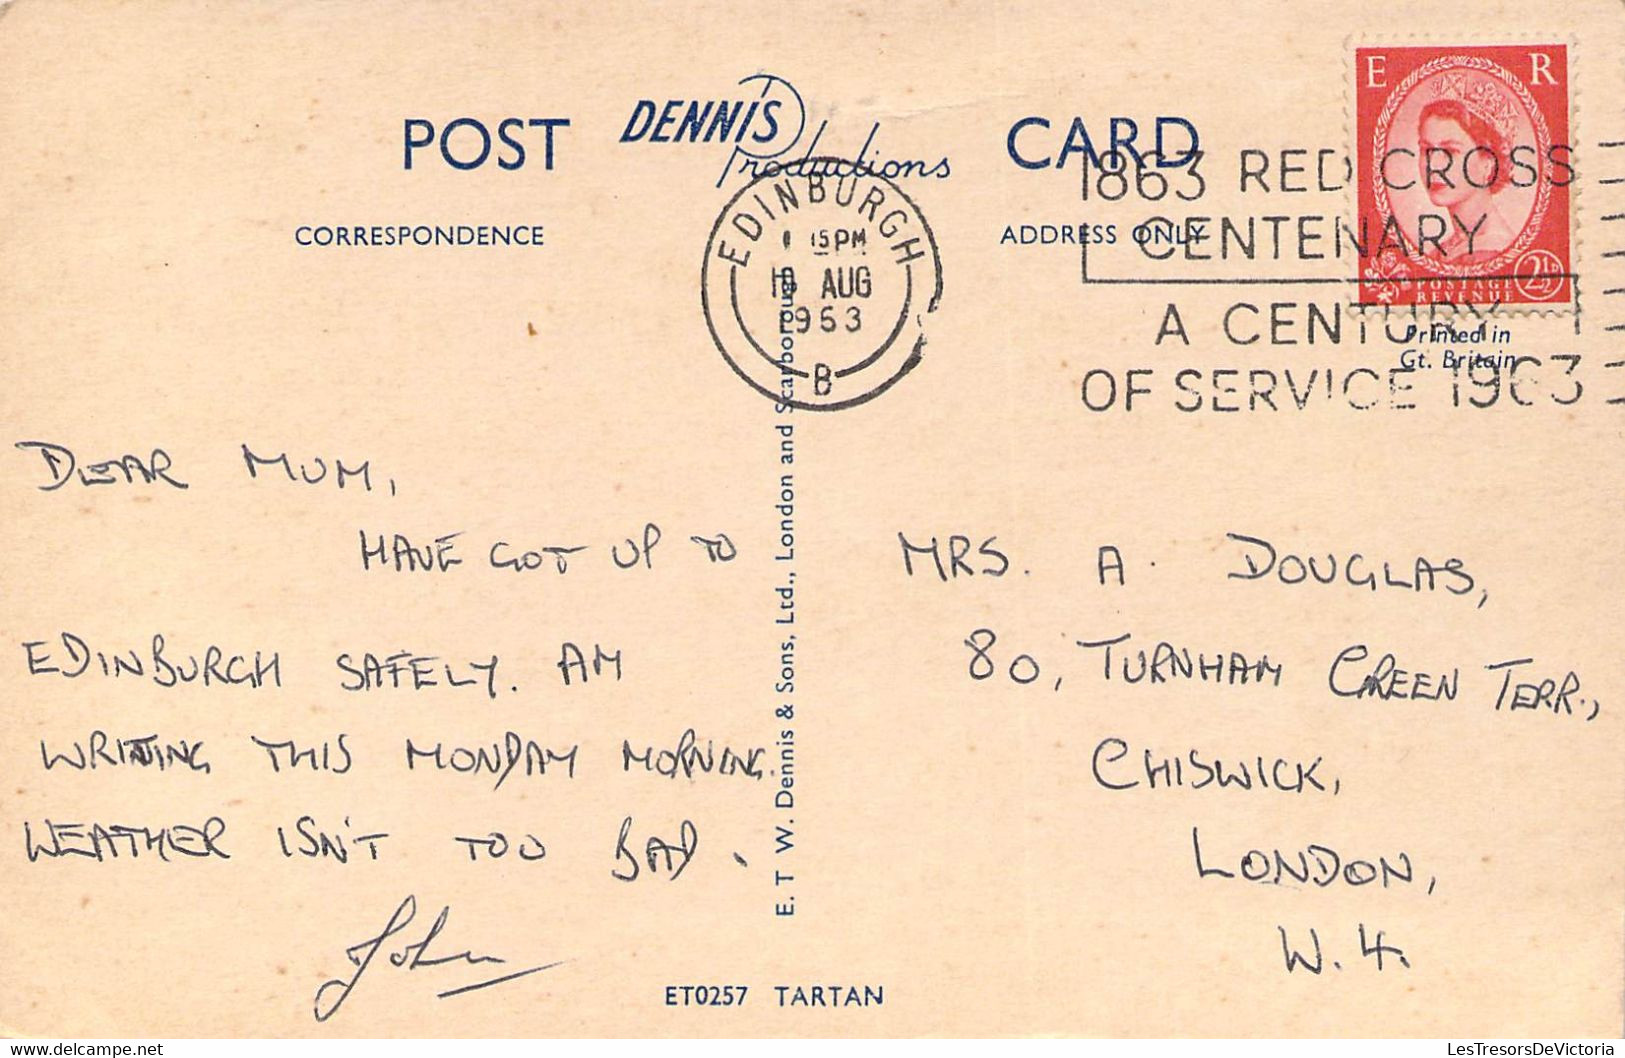 POST DENNIS Productions CARD
CORRESPONDENCE
ADDRESS ONLY
E R
POSTAGE
REVENUE
2½D
EDINBURGH
15 PM
AUG
1963
B
1863 RED CROSS
CENTENARY
A CENTURY
OF SERVICE 1963
Printed in
Gt. Britain
DEAR MUM,
HAVE GOT UP TO
EDINBURGH SAFELY. AM
WRITING THIS MONDAY MORNING.
WEATHER ISN'T TOO BAD.
John
E. T W. Dennis & Sons, Ltd., London and Scarborough
MRS. A. DOUGLAS,
80, TURNHAM GREEN TERR.,
CHISWICK,
LONDON,
W.4.
ET0257 TARTAN
LesTresorsDeVictoria